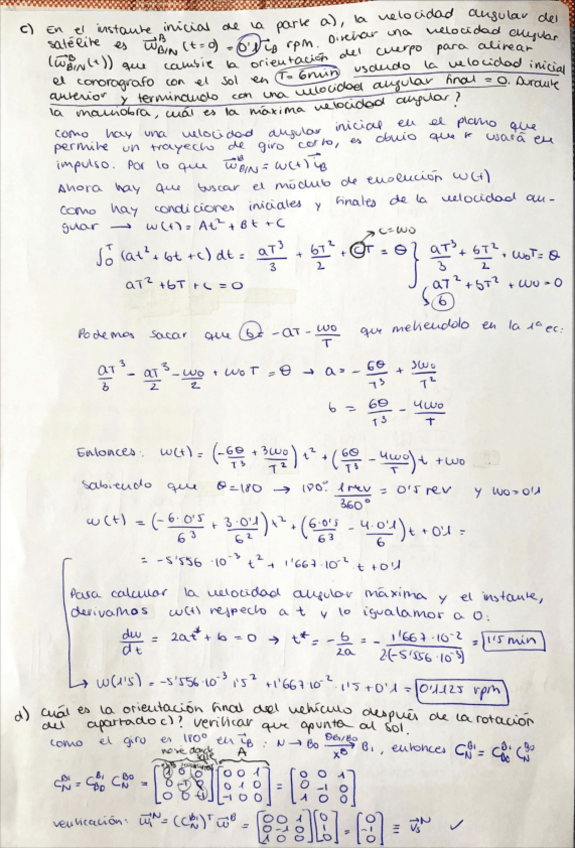 c) En el instante inicial de la parte a), la velocidad angular del
satélite es ω⃗ᴮ_B/N (t=0) = 0'1 i⃗_B rpm. Diseñar una velocidad angular
(ω⃗ᴮ_B/N(t)) que cambie la orientación del cuerpo para alinear
el coronografo con el sol en T=6min usando la velocidad inicial
anterior y terminando con una velocidad angular final = 0. Durante
la maniobra, ¿cuál es la máxima velocidad angular?
Como hay una velocidad angular inicial en el plano que
permite un trayecto de giro corto, es obvio que se usará en
impulso. Por lo que ω⃗ᴮ_B/N = ω(t) i⃗_B
Ahora hay que buscar el módulo de evolución ω(t)
Como hay condiciones iniciales y finales de la velocidad an-
gular → ω(t) = At² + Bt + C
c=ω₀
∫₀ᵀ (at² + bt + c) dt = aT³/3 + bT²/2 + cT = θ } aT³/3 + bT²/2 + ω₀T = θ
aT² + bT + c = 0 aT² + bT² + ω₀ = 0
b
Podemos sacar que b = -aT - ω₀/T que metiendolo en la 1ª ec:
aT³/3 - aT³/2 - ω₀/2 + ω₀T = θ → a = -6θ/T³ + 3ω₀/T²
b = 6θ/T³ - 4ω₀/T
Entonces: ω(t) = (-6θ/T³ + 3ω₀/T²) t² + (6θ/T³ - 4ω₀/T) t + ω₀
Sabiendo que θ=180 → 180° · 1rev/360° = 0'5 rev y ω₀=0'1
ω(t) = (-6·0'5/6³ + 3·0'1/6²) t² + (6·0'5/6³ - 4·0'1/6) t + 0'1 =
= -5'556·10⁻³ t² + 1'667·10⁻² · t + 0'1
Para calcular la velocidad angular máxima y el instante,
derivamos ω(t) respecto a t y lo igualamos a 0:
dω/dt = 2at* + b = 0 → t* = -b/2a = - 1'667·10⁻²/2(-5'556·10⁻³) = 1'5 min
→ ω(1'5) = -5'556·10⁻³ 1'5² + 1'667·10⁻² · 1'5 + 0'1 = 0'1125 rpm
d) ¿Cuál es la orientación final del vehículo después de la rotación
del apartado c)? Verificar que apunta al sol.
Como el giro es 180° en i⃗_B : N → B₀ →(θ_B1/B0, xᴮ) B₁, entonces C_N^B1 = C_B0^B1 C_N^B0
A
C_N^B1 = C_B0^B1 C_N^B0 = [1 0 0; 0 -1 0; 0 0 -1] [0 0 1; 0 1 0; -1 0 0] = [0 0 1; 0 -1 0; 1 0 0]
verificación: ω⃗₁ᴺ = (C_N^B1)ᵀ ω⃗ᴮ = [0 0 1; 0 -1 0; 1 0 0] [0; 1; 0] = [0; -1; 0] ≡ v⃗_sᴺ ✓